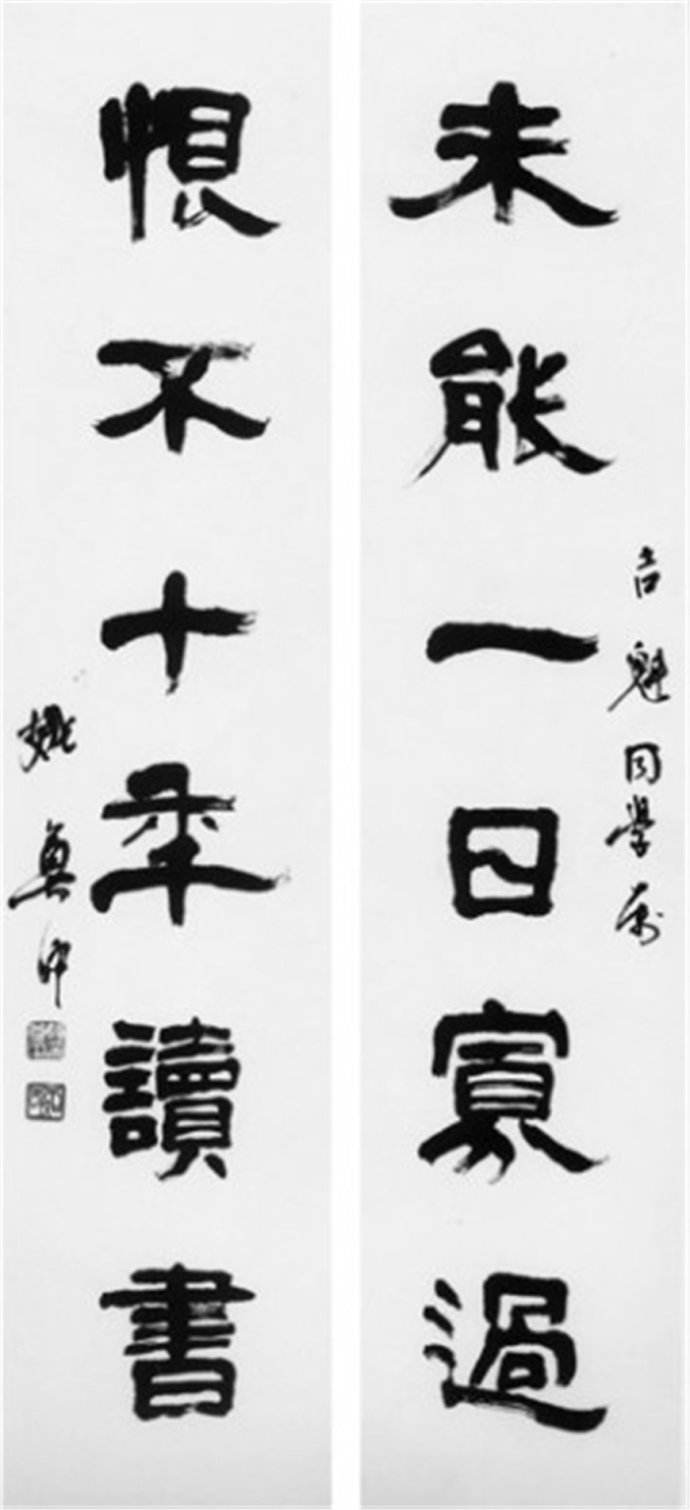 吉魁同學屬
未能一日寡過
恨不十年讀書
姚奠中